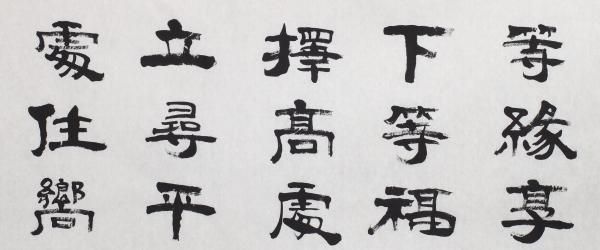 等緣享
下等福
擇高處
立尋平
處住嚮